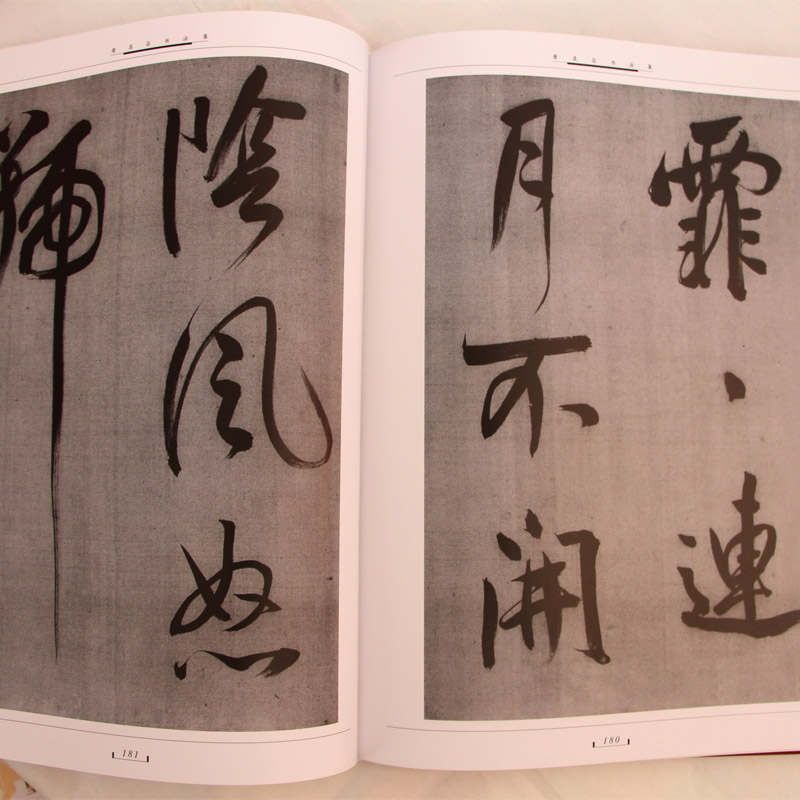 霏、連
月不開
180
陰風怒
號
181